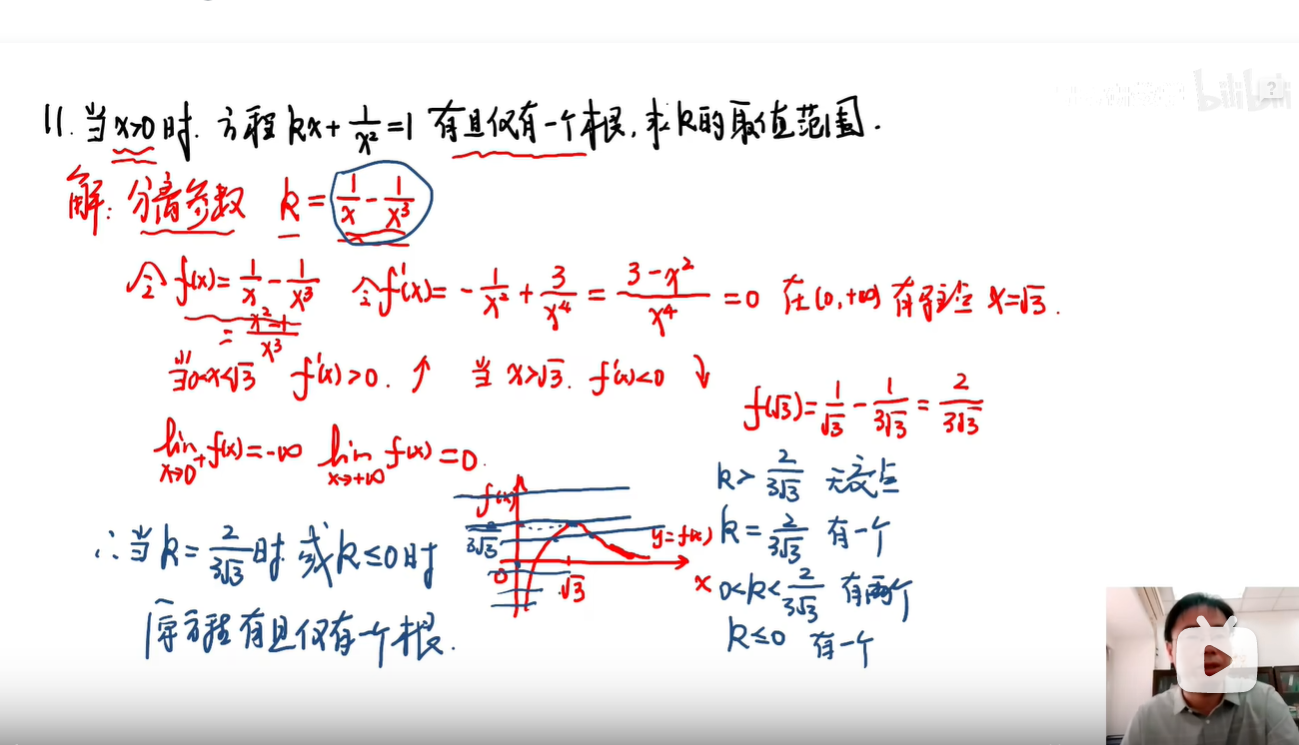 bilibili
11. 当x>0时. 方程 kx + 1/x² = 1 有且仅有一个根, 求k的取值范围.
解: 分离参数 k = 1/x - 1/x³
令 f(x) = 1/x - 1/x³ 令 f'(x) = -1/x² + 3/x⁴ = (3-x²)/x⁴ = 0 在(0,+∞)有驻点 x=√3.
= (x²-1)/x³
当0<x<√3 f'(x)>0. ↑ 当 x>√3. f'(x)<0 ↓
f(√3) = 1/√3 - 1/(3√3) = 2/(3√3)
lim x→0⁺ f(x) = -∞ lim x→+∞ f(x) = 0.
f(x)
2/(3√3)
0
√3
y=f(x)
x
k > 2/(3√3) 无交点
k = 2/(3√3) 有一个
0<k<2/(3√3) 有两个
k≤0 有一个
∴当k = 2/(3√3)时 或k≤0时
原方程有且仅有一个根.